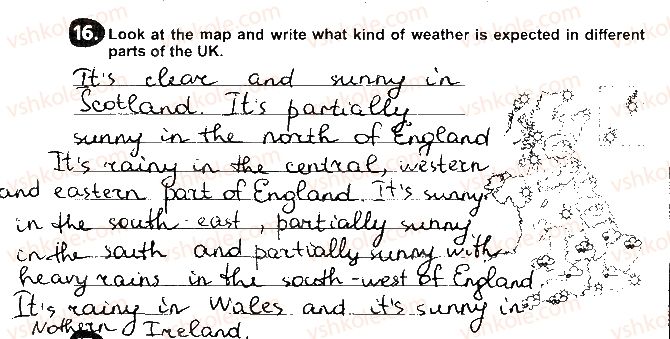 16. Look at the map and write what kind of weather is expected in different
parts of the UK.
It's clear and sunny in
Scotland. It's partially
sunny in the north of England
It's rainy in the central, western
and eastern part of England. It's sunny
in the south-east, partially sunny
in the south and partially sunny with
heavy rains in the south-west of England
It's rainy in Wales and it's sunny in
Nothern Ireland.